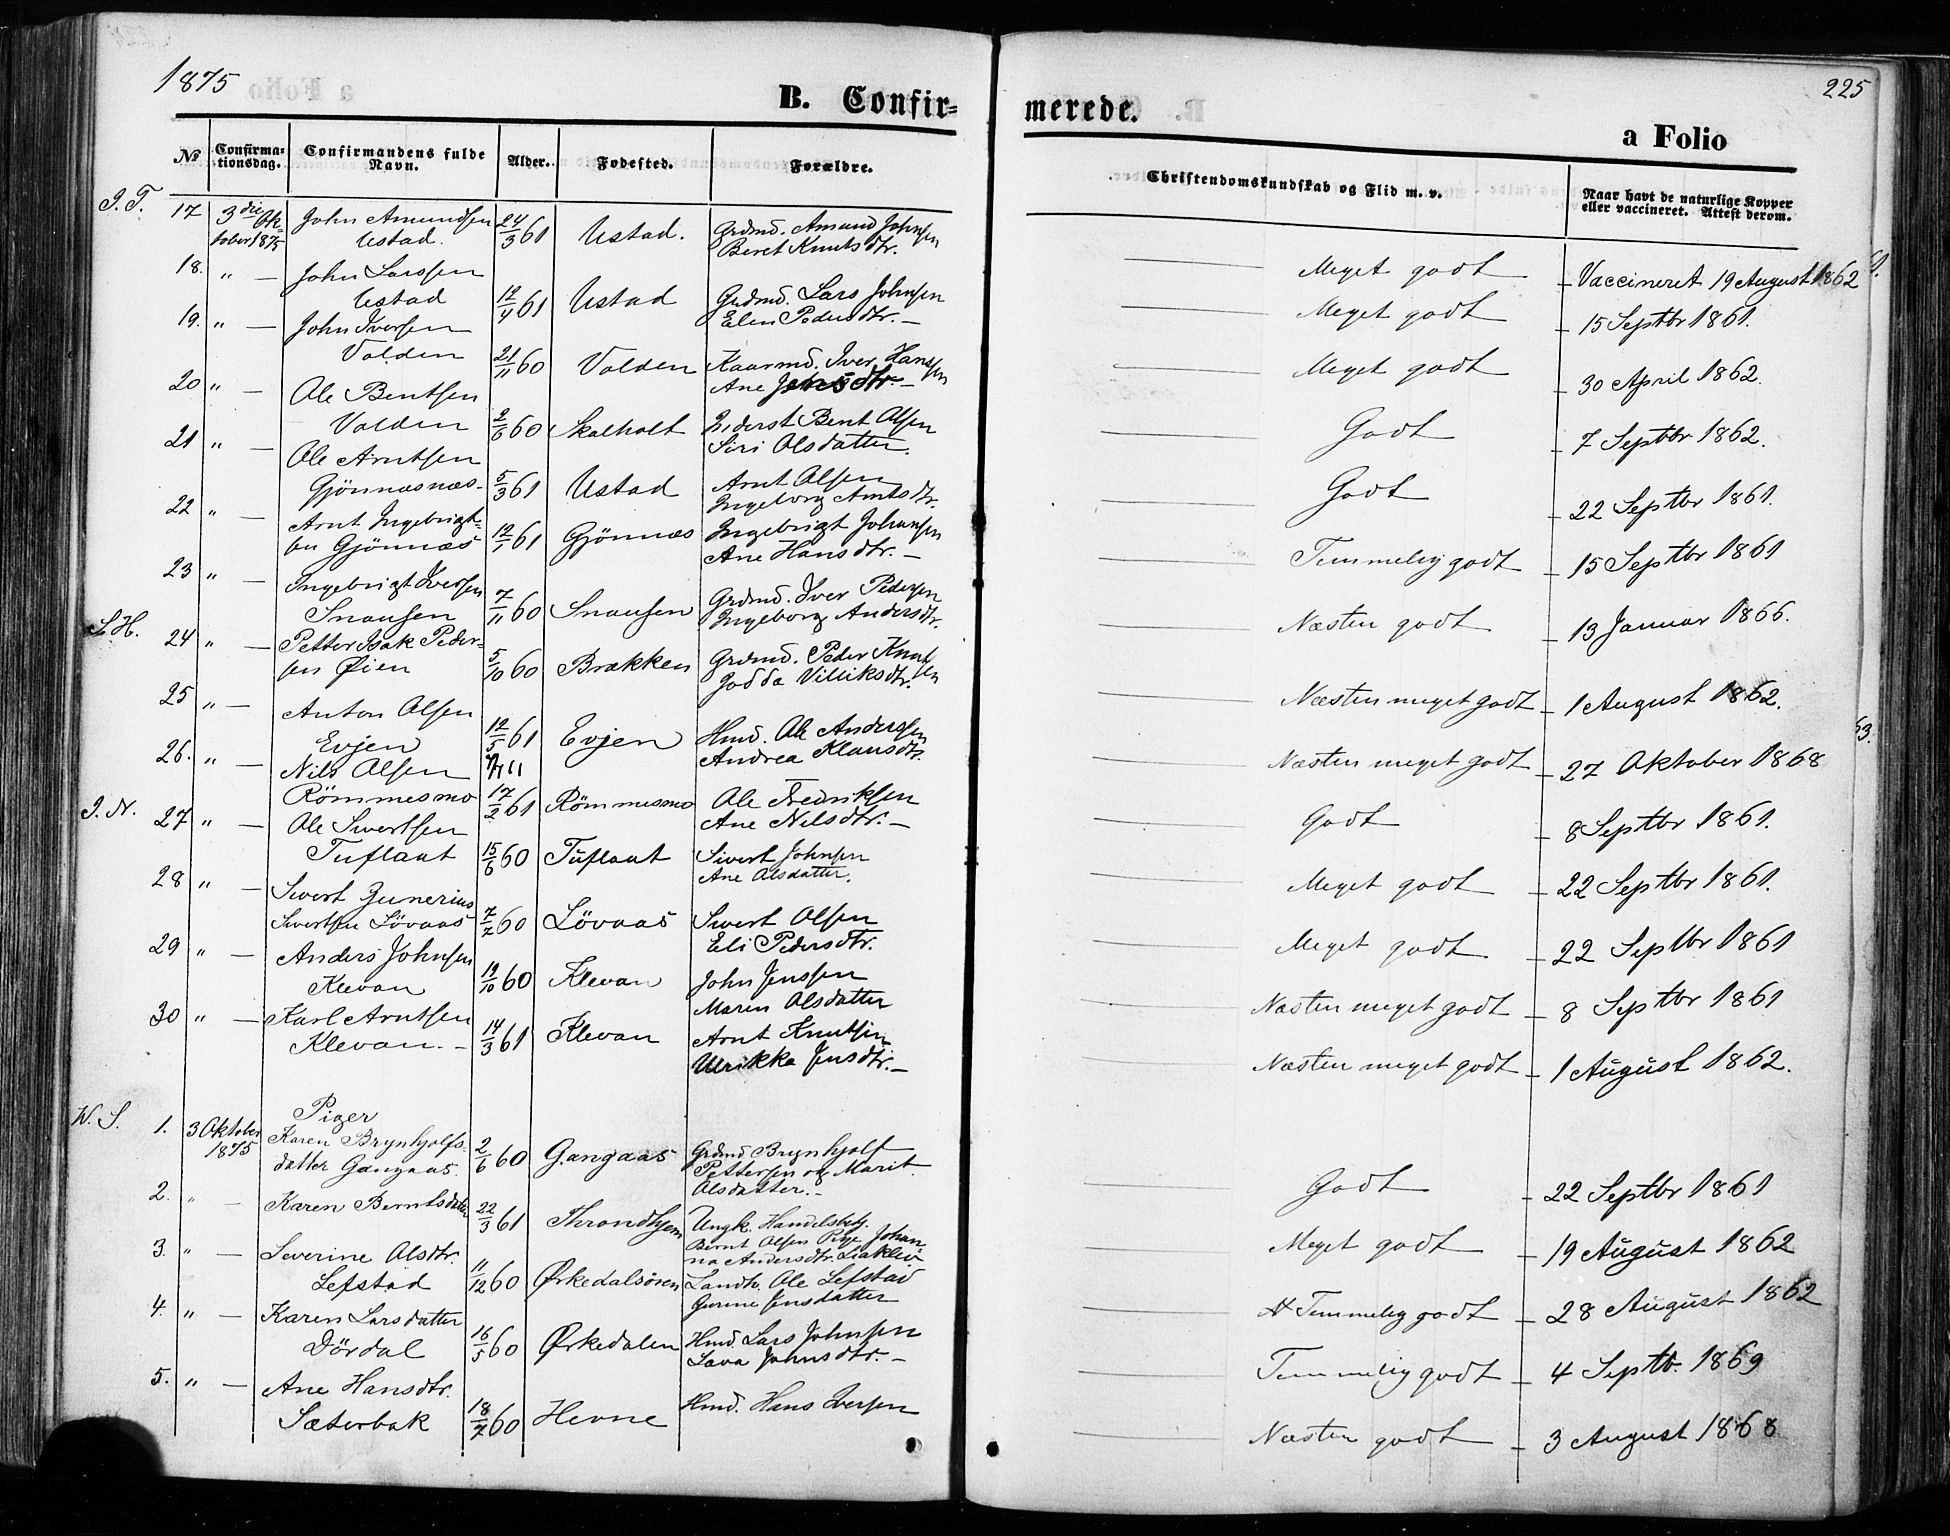 1875
B. Confir-
merede.
225
a Folio
No
Confirma-
tionsdag.
Confirmandens fulde
Navn.
Alder.
Fødested.
Forældre.
Christendomskundskab og Flid m. v.
Naar havt de naturlige Kopper
eller vaccineret. Attest derom.
I. T. 17 3die Ok-
tober 1875 John Amundsen
Ustad. 24/3 61 Ustad. Grdmd. Amund Johnsen
Beret Knutsdtr.
Meget godt Vaccineret 19 August 1862
18. " — John Larssen
Ustad 12/4 61 Ustad Grdmd. Lars Johnsen
Elen Pedersdtr. —
Meget godt — 15 Septbr 1861.
19. " — John Iversen
Volden 21/11 60 Volden Kaarmd. Iver Hanssen
Ane Jensdtr —
Meget godt — 30 April 1862.
20 " — Ole Bentsen
Volden 2/6 60 Skalholt Inderst Bent Olsen
Siri Olsdatter
Godt — 7 Septbr 1862.
21 " — Ole Arntsen
Gjönnæsnæs. 5/3 61 Ustad Arnt Olsen
Ingeborg Arntsdtr.
Godt — 22 Septbr 1861.
22 " — Arnt Ingebrigt-
sen Gjönnæs 12/1 61 Gjönnæs Ingebrigt Johansen
Ane Hansdtr. —
Temmelig godt — 15 Septbr 1861
23 " — Ingebrigt Iversen
Snausen 7/11 60 Snausen Grdmd. Iver Pedersen
Ingeborg Andersdtr.
Næsten godt — 13 Januar 1866.
S. H. 24 " — Petter Isak Peder-
sen Øien 5/10 60 Brækken Grdmd. Peder Knutsen
Godda Villiksdtr.
Næsten meget godt — 1 August 1862.
25 " — Anton Olsen
Evjen 12/5 61 Evjen Hmd. Ole Andersen
Andrea Klausdtr.
Næsten meget godt — 27 Oktober 1868
26. " — Nils Olsen
Römmesmo 17/2 61 Römmesmo Ole Fredriksen
Ane Nilsdtr. —
Godt — 8 Septbr 1861.
I. N. 27 " — Ole Sivertsen
Tuflaat 15/6 60 Tuflaat Sivert Johnsen
Ane Olsdatter.
Meget godt — 22 Septbr 1861.
28 " — Sivert Gunerius
Sivertsen Lövaas 7/7 60 Lövaas Sivert Olsen
Eli Pedersdtr.
Meget godt — 22 Septbr 1861
29 " — Anders Johnsen
Klevan 19/10 60 Klevan John Jenssen
Maren Olsdatter
Næsten meget godt — 8 Septbr 1861
30 " — Karl Arntsen
Klevan. — 14/3 61 Klevan Arnt Knutsen
Ulrikka Jensdtr. —
Næsten meget godt — 1 August 1862.
Piger
W. S. 1. 3 Oktober
1875 Karen Brynhjolfs-
datter Gangaas. 2/6 60 Gangaas Grdmd Brynhjolf
Pettersen og Marit
Olsdatter. —
Godt — 22 Septbr 1861
2. " — Karen Berntsdatter 22/3 61 Throndhjem Ungk. Handelsbetj.
Bernt Olsen Pige Johan
na Andersdtr.
Meget godt — 19 August 1862
3. " — Severine Olsdtr.
Lefstad 11/12 60 Ørkedalsören Landh. Ole Lefstad
Gurine Jensdatter
Temmelig godt — 28 August 1862
4. " — Karen Larsdatter
Dördal 16/5 60 Ørkedalen Hmd. Lars Johnsen
Sava Johnsdtr. —
Temmelig godt — 4 Septb. 1869
5. " — Ane Hansdtr.
Sæterbak 18/7 60 Hevne Hmd. Hans Iversen
Næsten godt — 3 August 1868